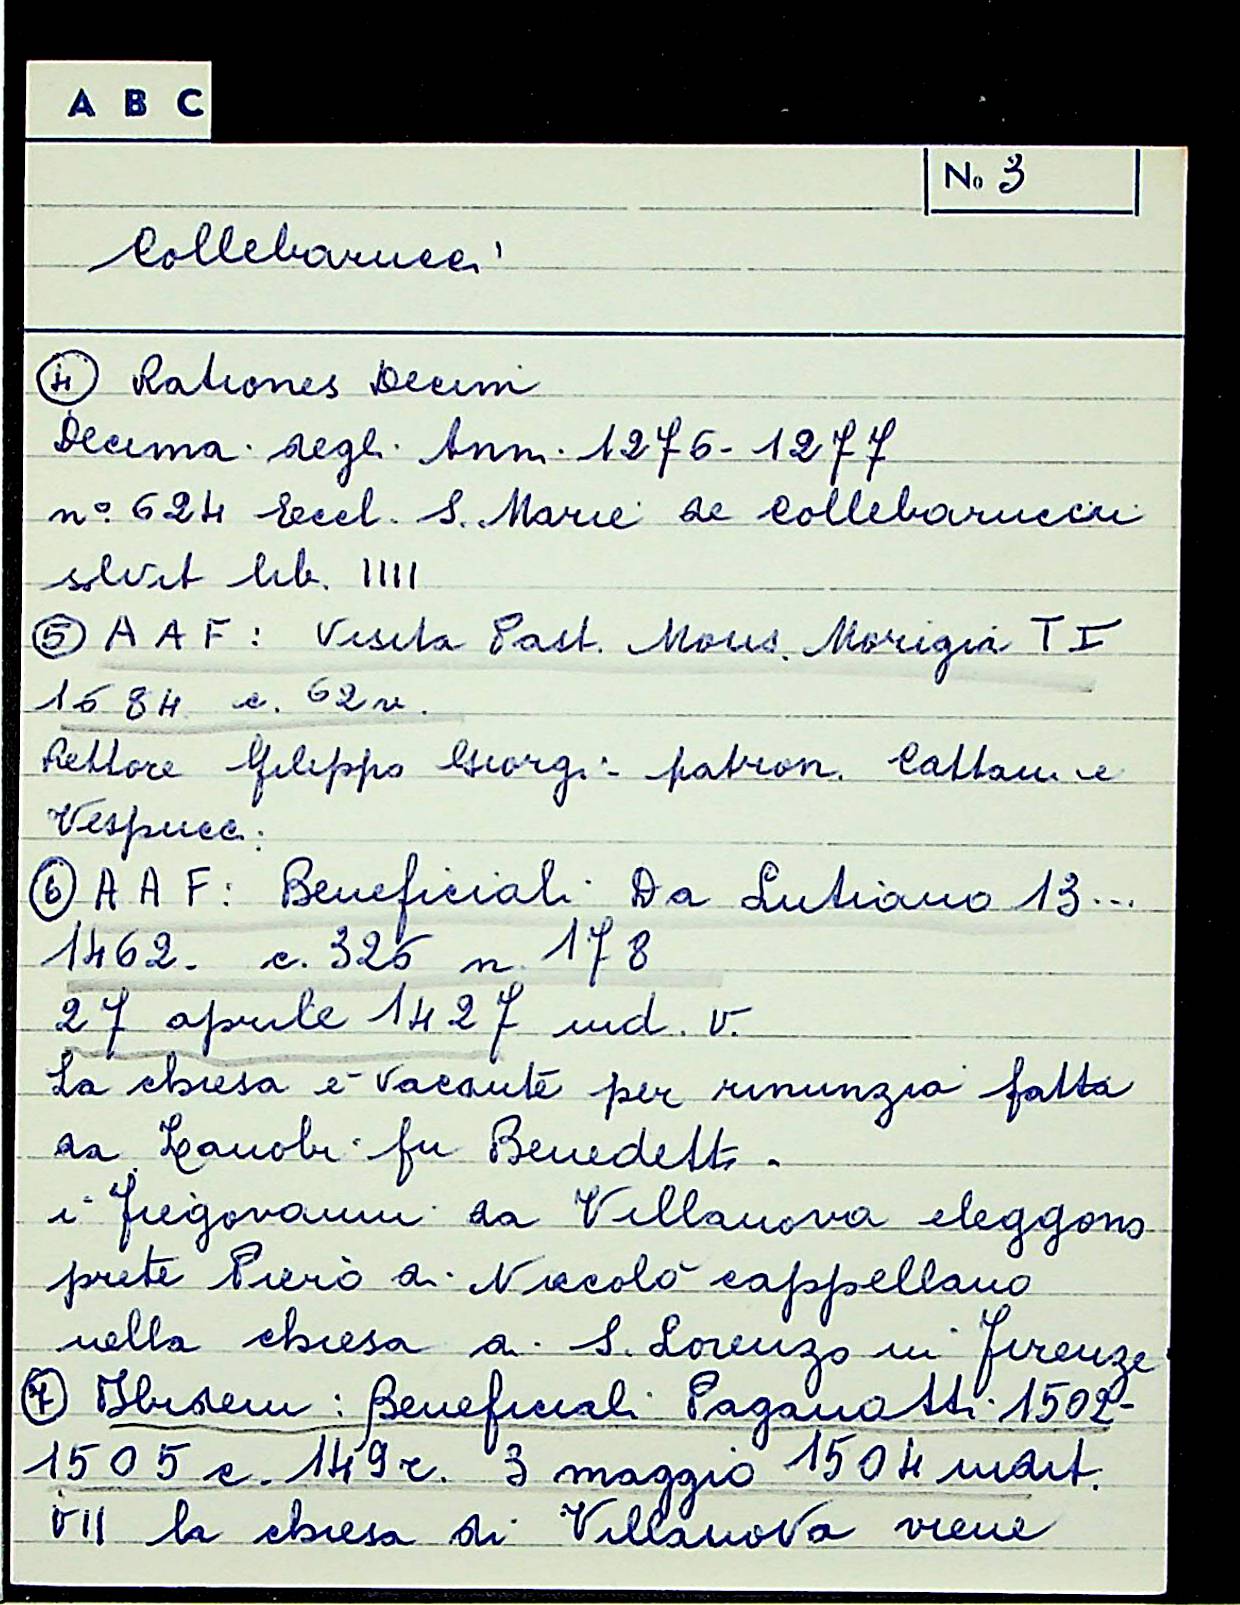 A B C
No 3
Collebarucci
④ Rationes Decim
Decima degli Anni 1276-1277
n° 624 Eccl. S. Marie de Collebaruccii
solvit lib. IIII
⑤ A A F: Visita Past. Mons. Morigia T I
1684 c. 62v.
Rettore Filippo Giorgi - patron. Cattani e
Vespucci
⑥ A A F: Beneficiali Da Lutiano 13...
1462. c. 326 n. 178
27 aprile 1427 ind. V.
La chiesa è vacante per rinunzia fatta
da Zanobi fu Benedetto.
i Figovanni da Villanova eleggono
prete Piero di Niccolò cappellano
nella chiesa di S. Lorenzo in Firenze
⑦ Ibidem: Beneficiali Paganotti 1502-
1505 c. 149r. 3 maggio 1504 indit.
VII la chiesa di Villanova viene